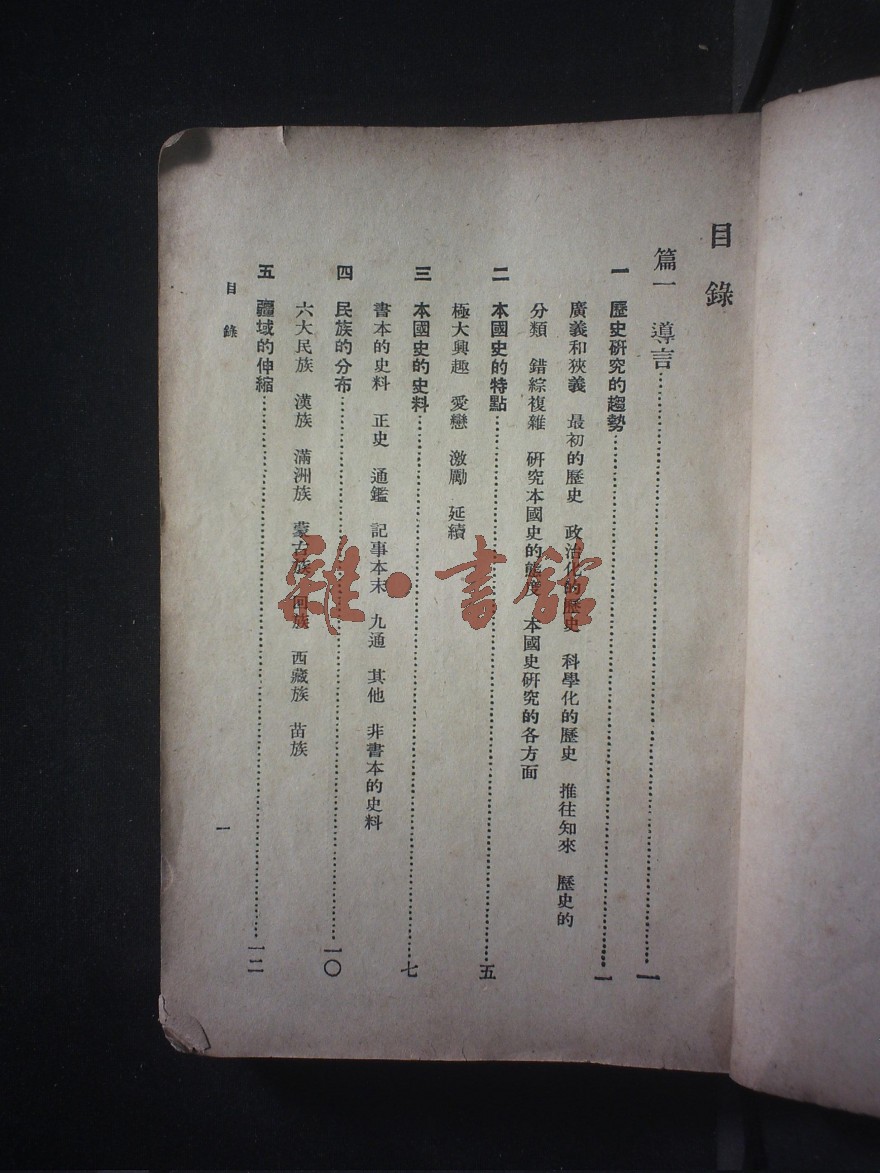 目錄
篇一 導言……一
一 歷史研究的趨勢……一
廣義和狹義 最初的歷史 政治化的歷史 科學化的歷史 推往知來 歷史的
分類 錯綜複雜 研究本國史的態度 本國史研究的各方面
二 本國史的特點……五
極大興趣 愛戀 激勵 延續
三 本國史的史料……七
書本的史料 正史 通鑑 記事本末 九通 其他 非書本的史料
四 民族的分布……一〇
六大民族 漢族 滿洲族 蒙古族 回族 西藏族 苗族
五 疆域的伸縮……一二
目錄 一
雜·書館